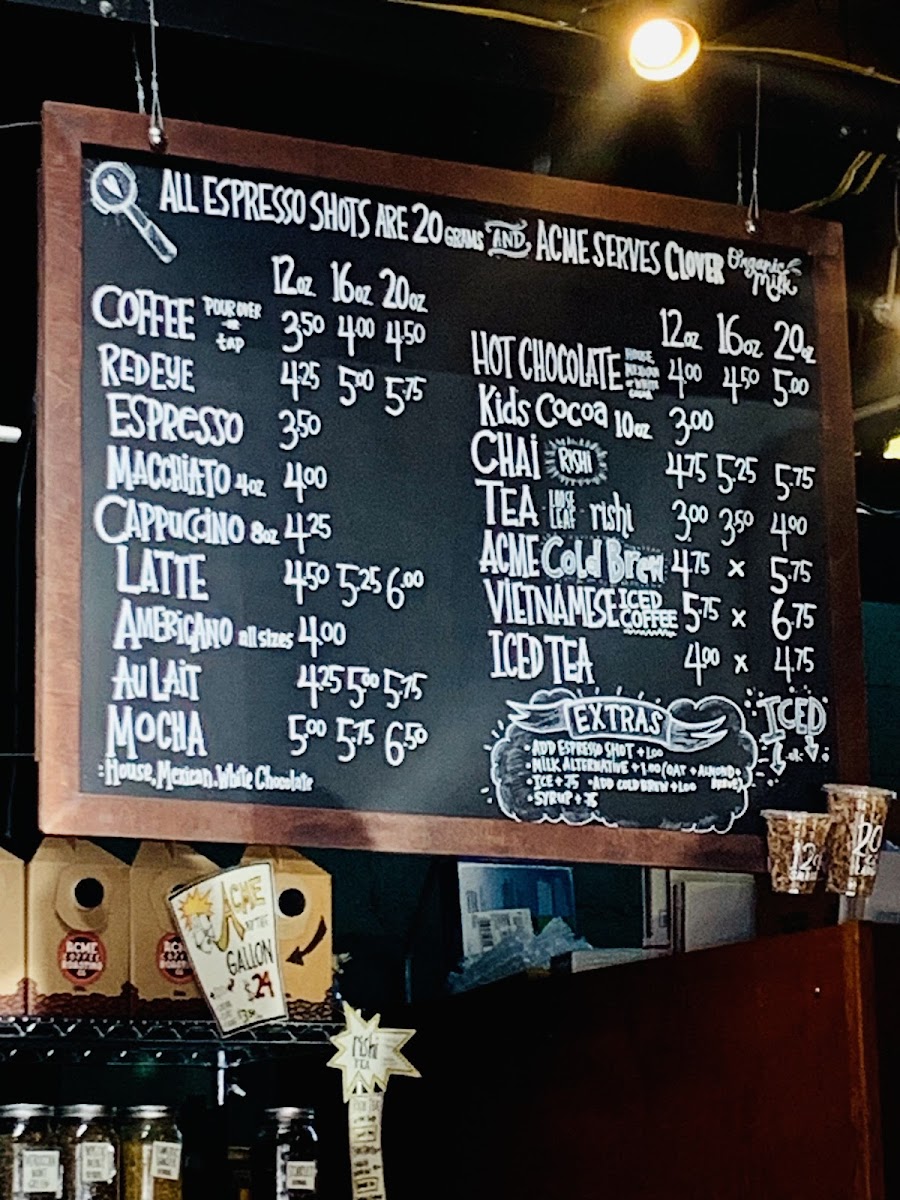 ALL ESPRESSO SHOTS ARE 20 GRAMS AND ACME SERVES CLOVER Organic Milk
12oz 16oz 20oz
COFFEE POUR OVER or tap 3.50 4.00 4.50
RED EYE 4.25 5.00 5.75
ESPRESSO 3.50
MACCHIATO 4oz 4.00
CAPPUCCINO 8oz 4.25
LATTE 4.50 5.25 6.00
AMERICANO all sizes 4.00
AU LAIT 4.25 5.00 5.75
MOCHA 5.00 5.75 6.50
: House, Mexican, White Chocolate
12oz 16oz 20oz
HOT CHOCOLATE HOUSE, MEXICAN or WHITE 4.00 4.50 5.00
Kids Cocoa 10oz 3.00
CHAI RISHI 4.75 5.25 5.75
TEA LOOSE LEAF - rishi 3.00 3.50 4.00
ACME Cold Brew 4.75 x 5.75
VIETNAMESE ICED COFFEE 5.75 x 6.75
ICED TEA 4.00 x 4.75
EXTRAS
• ADD ESPRESSO SHOT + 1.00
• MILK ALTERNATIVE + 1.00 (OAT + ALMOND
• ICE + .75 • ADD COLD BREW + 1.00
• SYRUP + .75
ICED
12oz
20
ACME
COFFEE
ROASTING
CO
ACME
BY THE
GALLON
$24
rishi
TEA